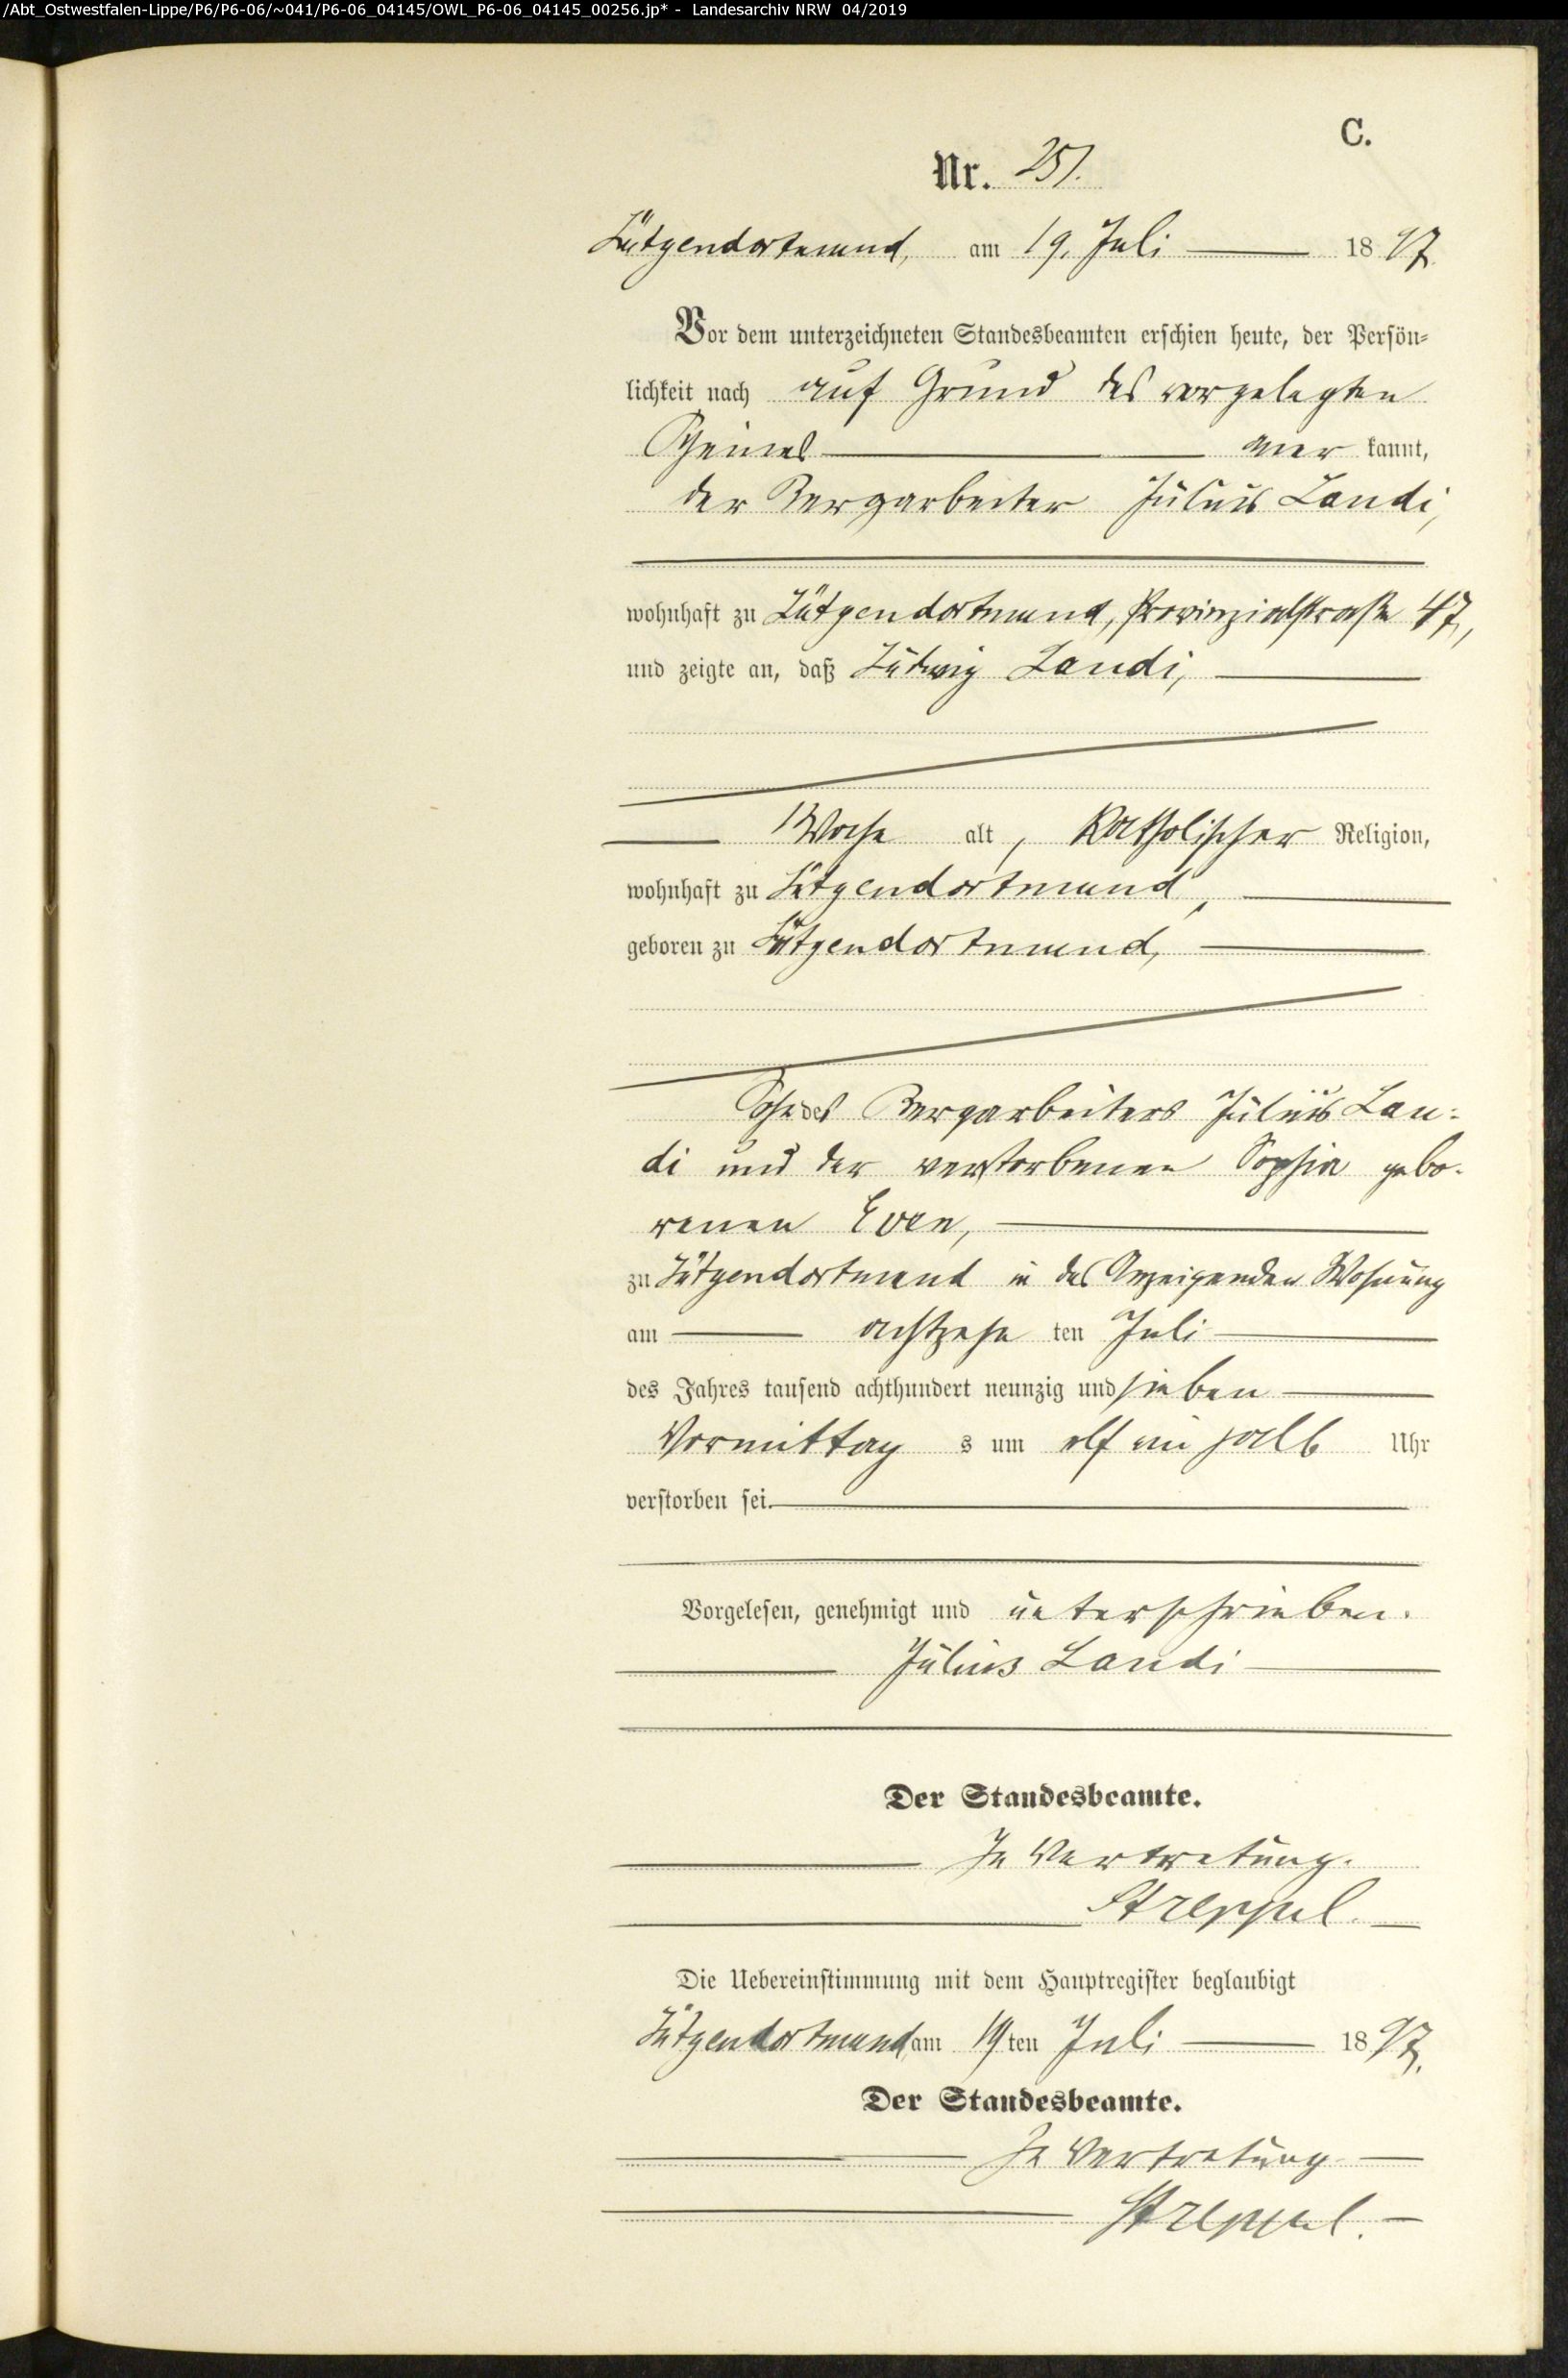 /Abt_Ostwestfalen-Lippe/P6/P6-06/~041/P6-06_04145/OWL_P6-06_04145_00256.jp* - Landesarchiv NRW 04/2019
C.
Nr. 251.
Lütgendortmund, am 19. Juli 1897
Vor dem unterzeichneten Standesbeamten erschien heute, der Persön-
lichkeit nach auf Grund des vorgelegten
Scheines aner kannt,
der Bergarbeiter Julius Landi,
wohnhaft zu Lütgendortmund, Provinzialstraße 47,
und zeigte an, daß Ludwig Landi,
1 Woche alt, katholischer Religion,
wohnhaft zu Lütgendortmund,
geboren zu Lütgendortmund,
Sohn des Bergarbeiters Julius Lan-
di und der verstorbenen Sophia gebo-
renen Even,
zu Lütgendortmund in des Anzeigenden Wohnung
am achtzehn ten Juli
des Jahres tausend achthundert neunzig und sieben
Vormittag s um elf ein halb Uhr
verstorben sei.
Vorgelesen, genehmigt und unterschrieben.
Julius Landi
Der Standesbeamte.
In Vertretung.
Streppel.
Die Uebereinstimmung mit dem Hauptregister beglaubigt
Lütgendortmund am 19ten Juli 1897.
Der Standesbeamte.
In Vertretung
Streppel.